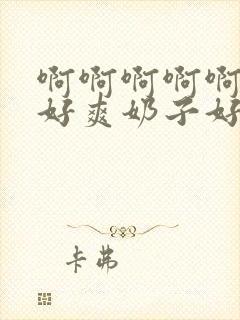 啊啊啊啊啊
好爽奶子好
卡弗